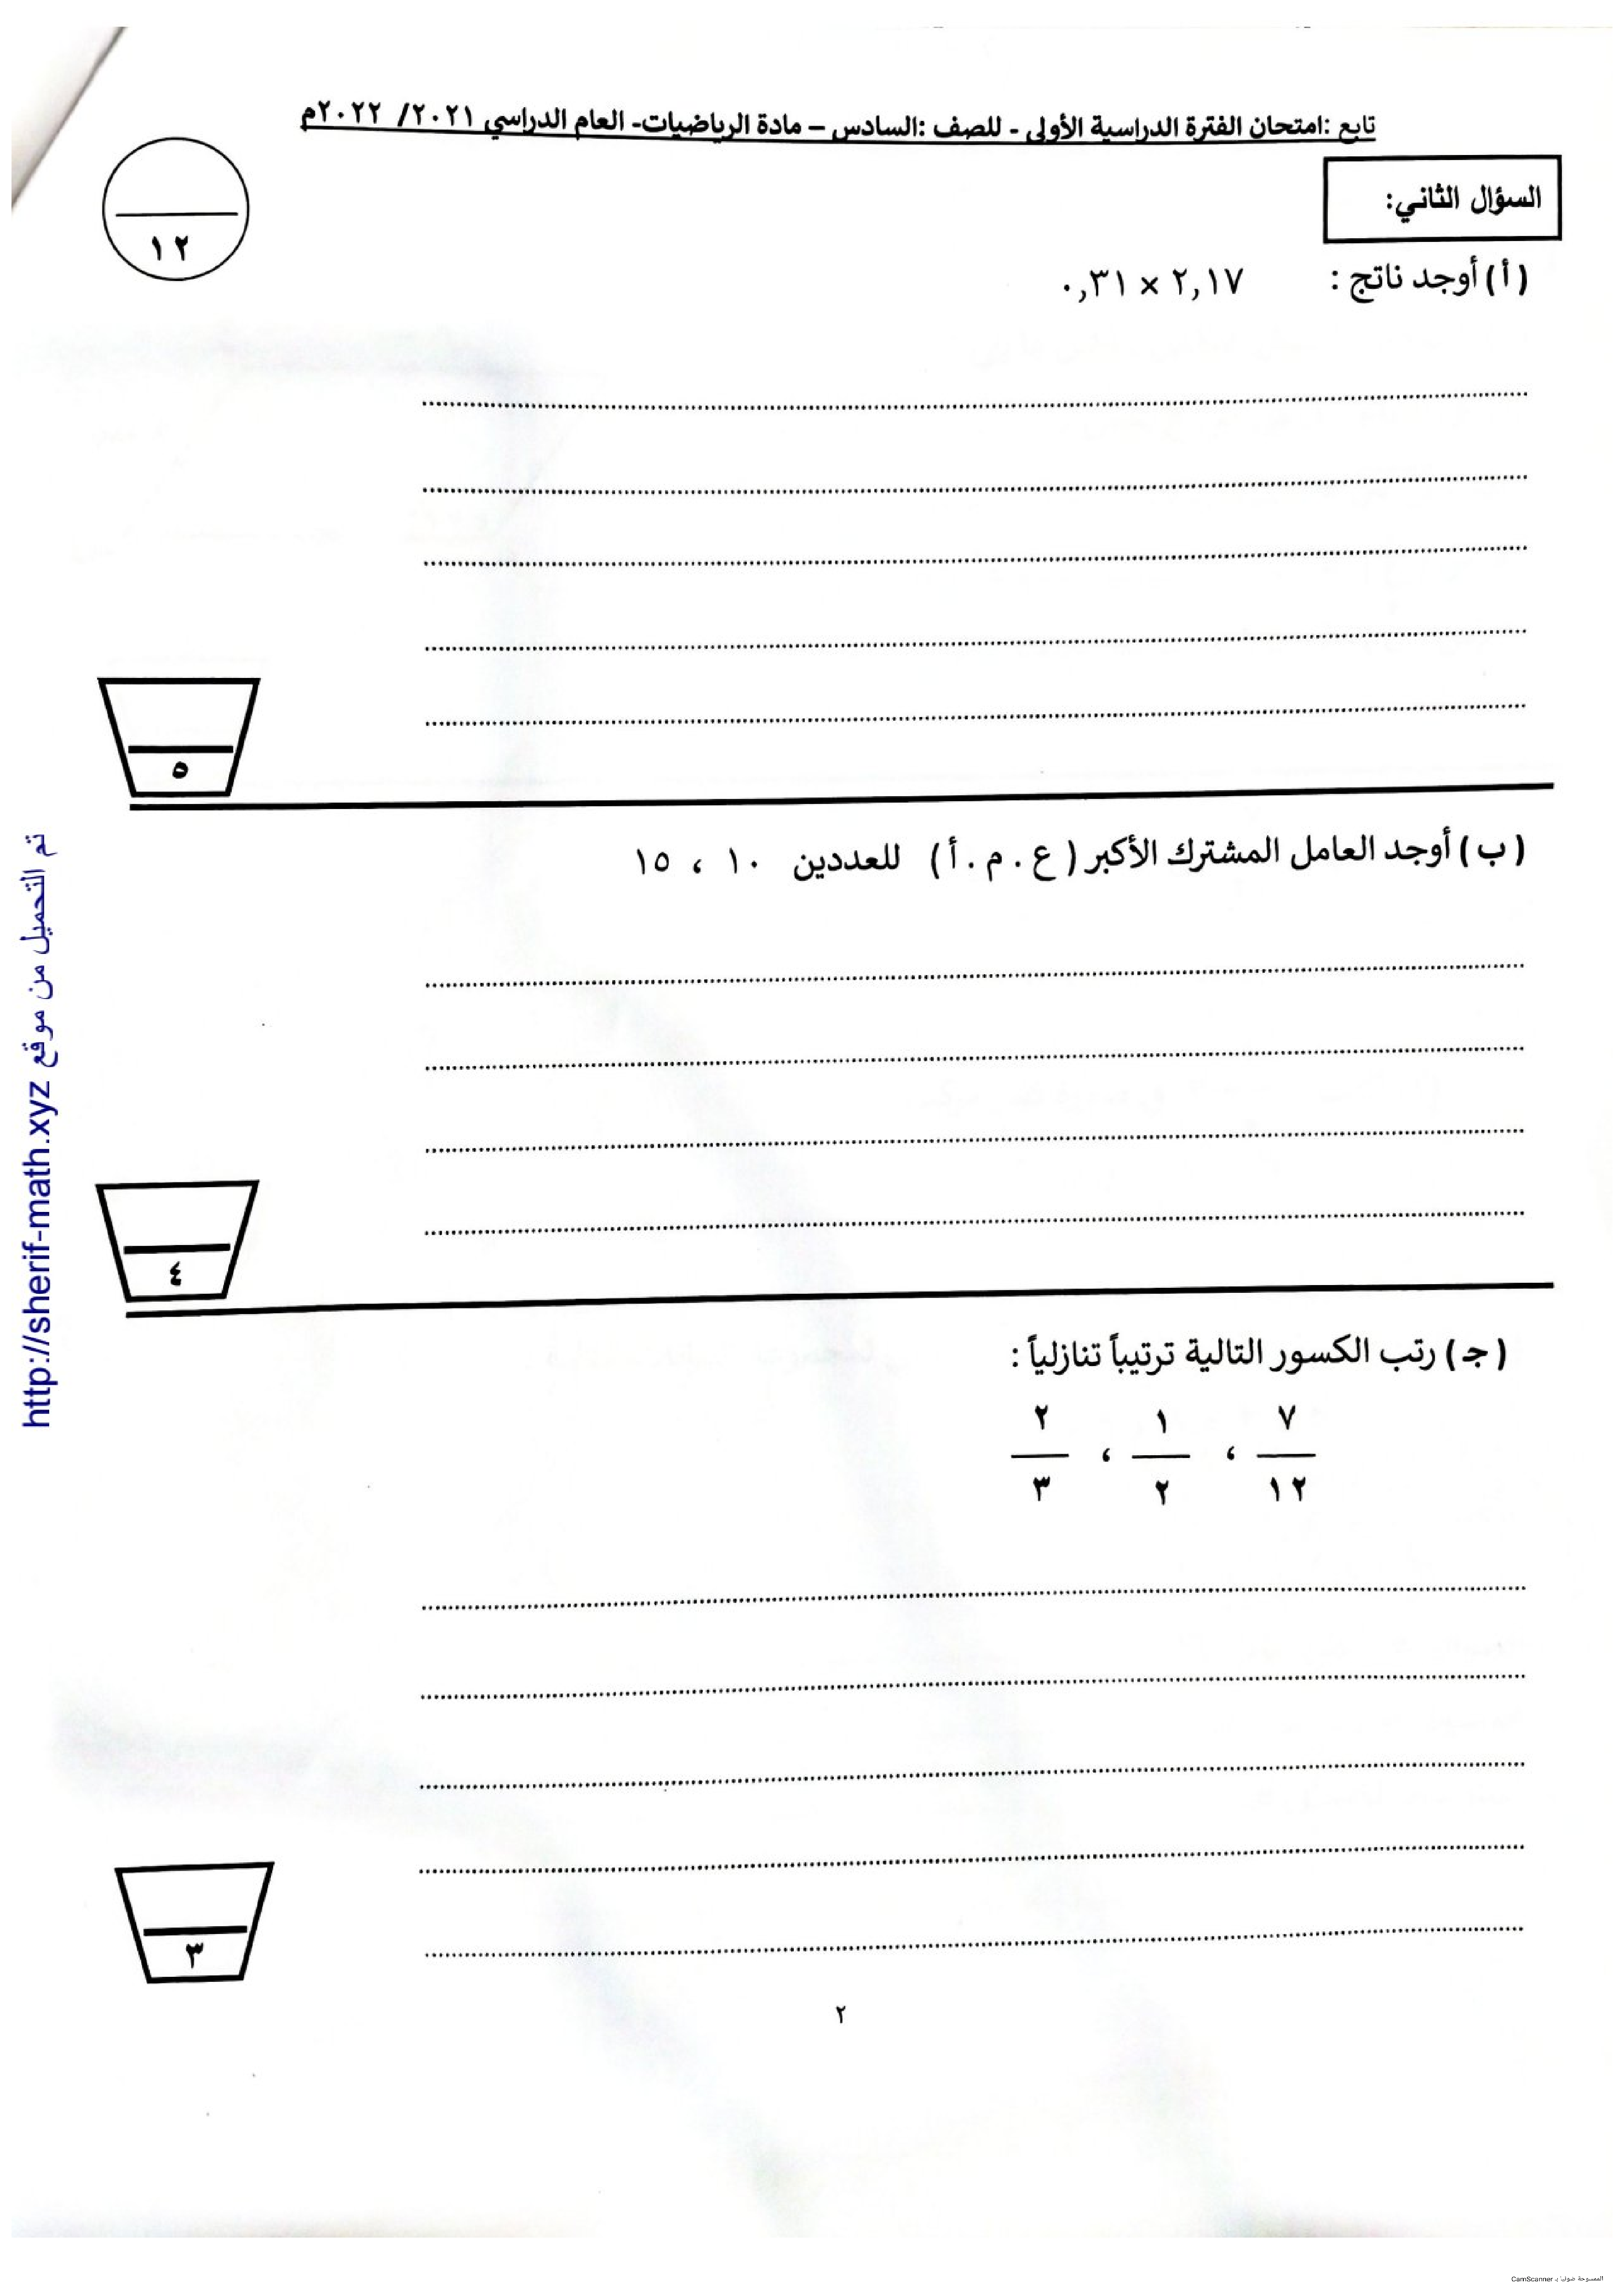 تابع :امتحان الفترة الدراسية الأولى - للصف :السادس – مادة الرياضيات- العام الدراسي ٢٠٢١/ ٢٠٢٢م
السؤال الثاني:
١٢
(أ) أوجد ناتج : ٢,١٧ × ٠,٣١
٥
(ب) أوجد العامل المشترك الأكبر (ع . م . أ) للعددين ١٠ ، ١٥
٤
(جـ) رتب الكسور التالية ترتيباً تنازلياً :
٧ ١ ٢
، ،
١٢ ٢ ٣
٣
٢
تم التحميل من موقع http://sherif-math.xyz
الممسوحة ضوئيا بـ CamScanner